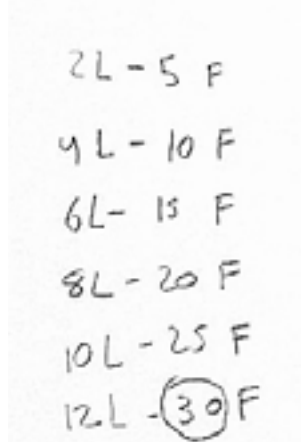 2L - 5 F
4 L - 10 F
6L - 15 F
8L - 20 F
10L - 25 F
12L - 30 F